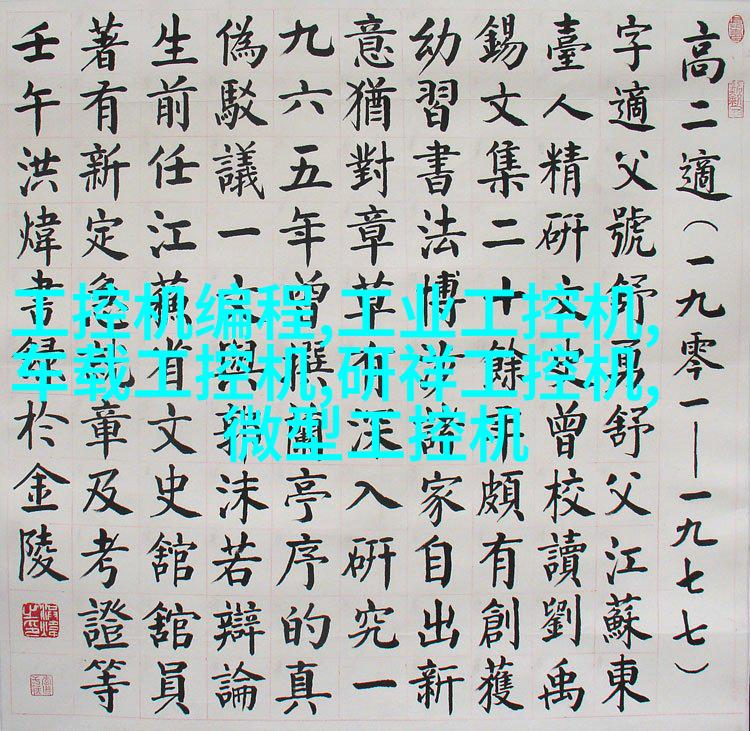 高二適（一九零一——一九七七）
字適父號舒勇舒父江蘇東
臺人精研文史曾校讀劉禹
錫文集二十餘年頗有創獲
幼習書法博涉諸家自出新
意猶對章草有深入研究一
九六五年曾撰蘭亭序的真
偽駁議一文與郭沫若辯論
生前任江蘓省文史舘舘員
著有新定急就章及考證等
壬午洪煒書録於金陵
工控机编程,工业工控机,
车载工控机,研祥工控机,
微型工控机